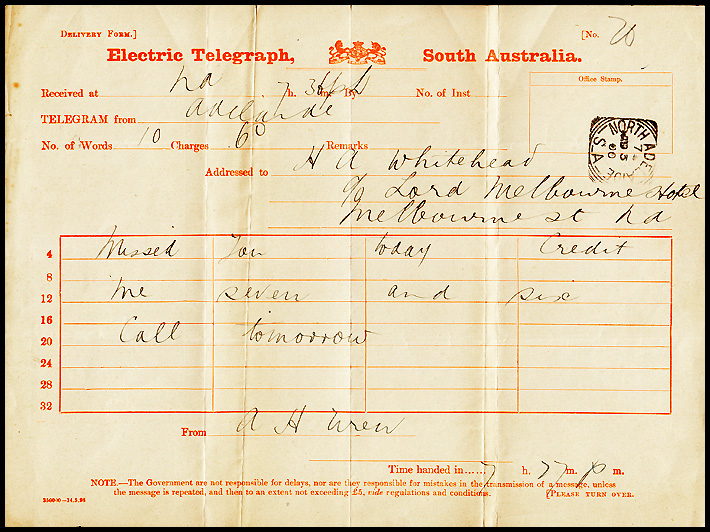 DELIVERY FORM.] [No. 20
Electric Telegraph, South Australia.
Received at na 7 h. 34 m. By No. of Inst
Office Stamp.
TELEGRAM from adelaide
No. of Words 10 Charges 6D Remarks
NORTH ADELAIDE
S-A
Addressed to H A Whitehead
c/o Lord Melbourne Hotel
Melbourne st na
4 Missed you today Credit
8
12 me seven and six
16
20 Call tomorrow
24
28
32
From A H Wren
Time handed in......7 h. 27 m. p m.
NOTE.—The Government are not responsible for delays, nor are they responsible for mistakes in the transmission of a message, unless
the message is repeated, and then to an extent not exceeding £5, vide regulations and conditions. (PLEASE TURN OVER.